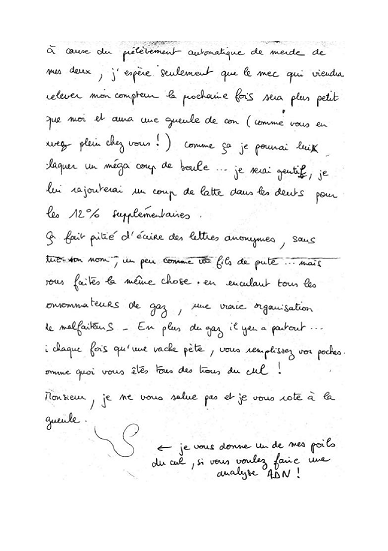 à cause du prélèvement automatique de merde de
mes deux, j'espère seulement que le mec qui viendra
relever mon compteur la prochaine fois sera plus petit
que moi et aura une gueule de con (comme vous en
avez plein chez vous !) comme ça je pourrai lui
claquer un méga coup de boule ... je serai gentil, je
lui rajouterai un coup de latte dans les dents pour
les 12% supplémentaires.
Ça fait pitié d'écrire des lettres anonymes, sans
son nom, un peu comme fils de pute ... mais
vous faites la même chose en enculant tous les
consommateurs de gaz, une vraie organisation
de malfaiteurs - En plus de gaz il y en a partout ...
à chaque fois qu'une vache pète, vous remplissez vos poches.
comme quoi vous êtes tous des trous du cul !
Monsieur, je ne vous salue pas et je vous rote à la
gueule.
← je vous donne un de mes poils
du cul, si vous voulez faire une
analyse ADN !